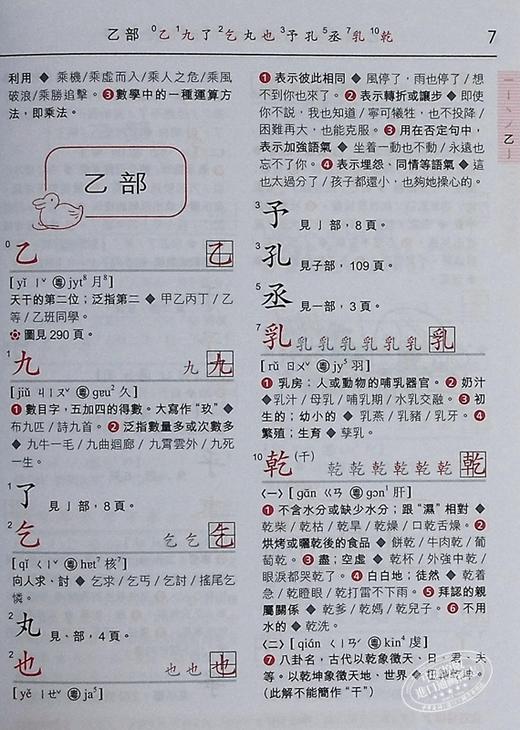 乙部 ⁰乙 ¹九 了 ²乞 丸 也 ³予 孔 ⁵丞 ⁷乳 ¹⁰乾
7
利用 ◆ 乘機/乘虛而入/乘人之危/乘風
破浪/乘勝追擊。❸數學中的一種運算方
法，即乘法。
乙部
⁰乙 乙
[yǐ ㄧˇ 粵 jyt⁸ 月⁸]
天干的第二位；泛指第二 ◆ 甲乙丙丁/乙
等/乙班同學。
圖見 290 頁。
¹九 九 九
[jiǔ ㄐㄧㄡˇ 粵 gɐu² 久]
❶數目字，五加四的得數。大寫作“玖” ◆
布九匹/詩九首。❷泛指數量多或次數多
◆ 九牛一毛/九曲迴廊/九霄雲外/九死
一生。
¹了 見亅部，8 頁。
²乞 乞 乞 乞
[qǐ ㄑㄧˇ 粵 hɐt⁷ 核⁷]
向人求、討 ◆ 乞求/乞丐/乞討/搖尾乞
憐。
²丸 見丶部，4 頁。
²也 也 也 也
[yě ㄧㄝˇ 粵 ja⁵]
❶表示彼此相同 ◆ 風停了，雨也停了/想
不到你也來了。❷表示轉折或讓步 ◆ 即使
你不說，我也知道/寧可犧牲，也不投降/
困難再大，也能克服。❸用在否定句中，
表示加強語氣 ◆ 坐着一動也不動/永遠也
忘不了你。❹表示埋怨、同情等語氣 ◆ 這
也太過分了/孩子都還小，也夠她操心的。
³予 見亅部，8 頁。
³孔 見子部，109 頁。
⁵丞 見一部，3 頁。
⁷乳 乳 乳 乳 乳 乳 乳
[rǔ ㄖㄨˇ 粵 jy⁵ 羽]
❶乳房；人或動物的哺乳器官。❷奶汁
◆ 乳汁/母乳/哺乳期/水乳交融。❸初
生的；幼小的 ◆ 乳燕/乳豬/乳牙。❹
繁殖；生育 ◆ 孳乳。
¹⁰乾(干) 乾 乾 乾 乾 乾 乾
〈一〉[gān ㄍㄢ 粵 gɔn¹ 肝]
❶不含水分或缺少水分；跟“濕”相對 ◆
乾柴/乾枯/乾旱/乾燥/口乾舌燥。❷
烘烤或曬乾後的食品 ◆ 餅乾/牛肉乾/葡
萄乾。❸盡；空虛 ◆ 乾杯/外強中乾/
眼淚都哭乾了。❹白白地；徒然 ◆ 乾着
急/乾瞪眼/乾打雷不下雨。❺拜認的親
屬關係 ◆ 乾爹/乾媽/乾兒子。❻不用
水的 ◆ 乾洗。
〈二〉[qián ㄑㄧㄢˊ 粵 kin⁴ 虔]
❼八卦名，古代以乾象徵天、日、君、夫
等。以乾坤象徵天地、世界 ◆ 扭轉乾坤。
(此解不能簡作“干”)